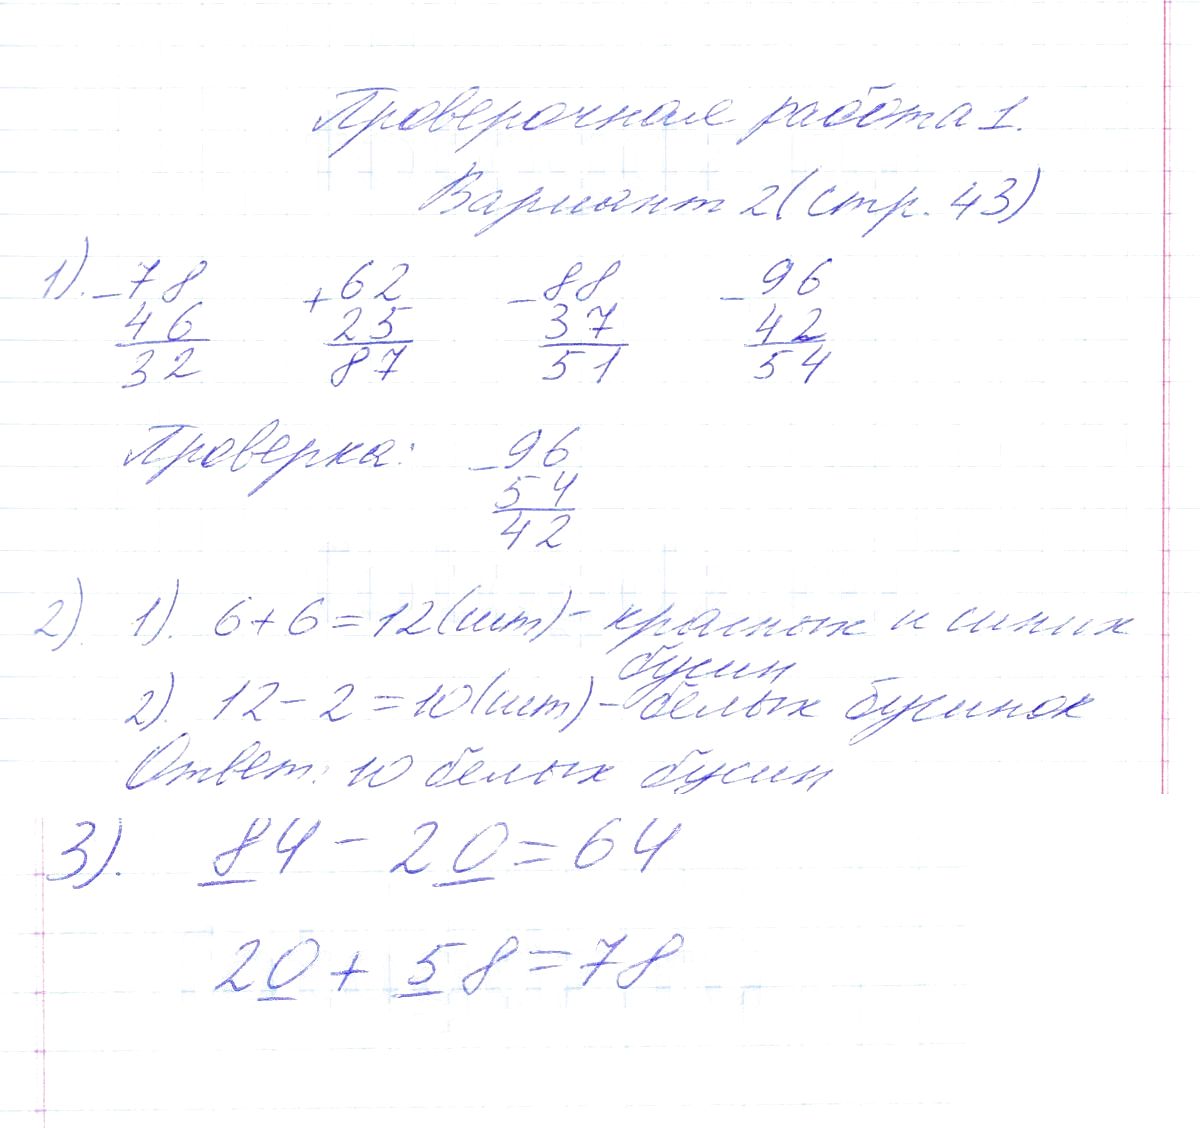 Проверочная работа 1.
Вариант 2 (стр. 43)
1). - 78 + 62 - 88 - 96
46 25 37 42
32 87 51 54
Проверка: - 96
54
42
2). 1). 6 + 6 = 12 (шт) - красных и синих
бусин
2). 12 - 2 = 10 (шт) - белых бусинок
Ответ: 10 белых бусин
3). 84 - 20 = 64
20 + 58 = 78